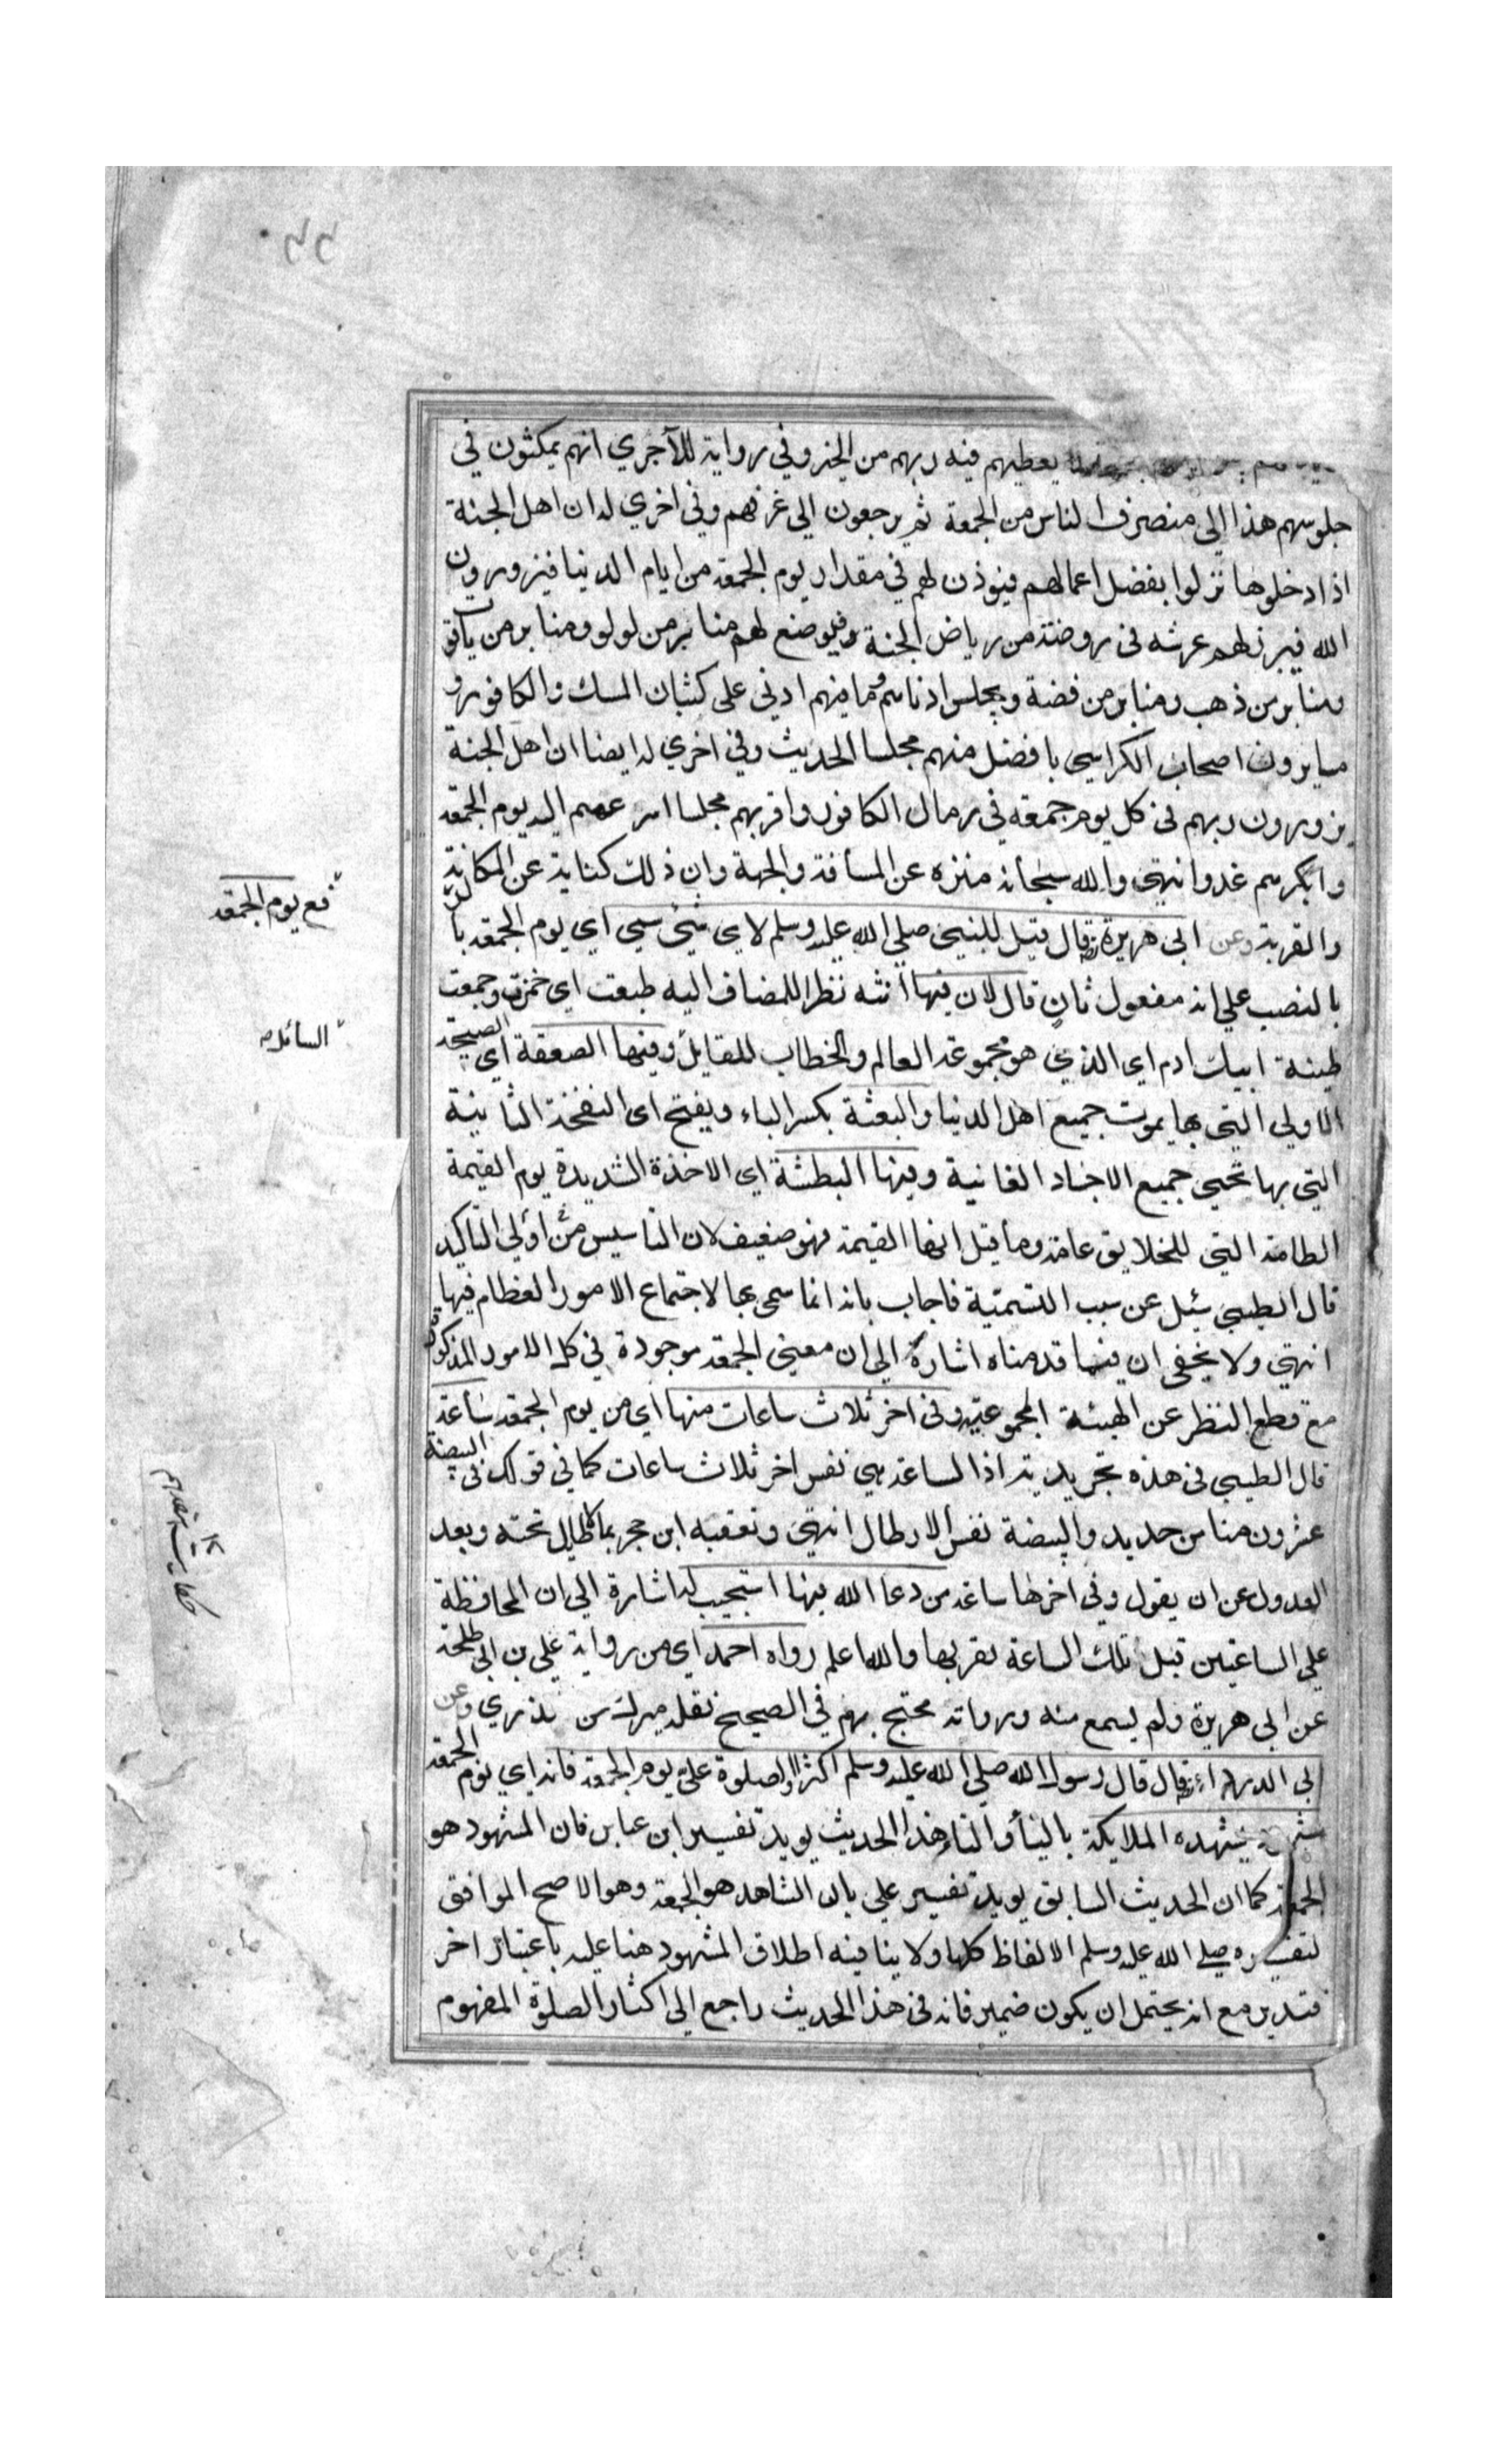 يعطيهم فيه ربهم من الخير وفي رواية للآجري انهم يمكثون في
جلوسهم هذا الي منصرف الناس من الجمعة ثم يرجعون الي غرفهم وفي اخري له ان اهل الجنة
اذا دخلوها نزلوا بفضل اعمالهم فيوذن لهم في مقدار يوم الجمعة من ايام الدنيا فيزورون
الله فيبرز لهم عرشه في روضة من رياض الجنة فيوضع لهم منابر من لولو ومنابر من ياقوت
ومنابر من ذهب ومنابر من فضة ويجلس ادناهم وما منهم ادني على كثبان المسك والكافور و
ما يرون اصحاب الكراسي بافضل منهم مجلسا الحديث وفي اخري له ايضا ان اهل الجنة
يزورون ربهم في كل يوم جمعة في رمال الكافور واقربهم مجلسا اسرعهم اليه يوم الجمعة
وابكرهم غدوا انتهي والله سبحانه منزه عن المسافة والجهة وان ذلك كناية عن المكانة
والقربة وعن ابي هريرة قال قيل للنبي صلي الله عليه وسلم لاي شيء سمي اي يوم الجمعة
بالنصب علي انه مفعول ثان قال لان فيها انثه نظرا للمضاف اليه طبعت اي خمرت وجمعت
طينة ابيك ادم اي الذي هو مجموعة العالم والخطاب للقايل وفيها الصعقة اي الصيحة
الاولي التي بها يموت جميع اهل الدنيا والبعثة بكسر الباء ويفتح اي النفخة الثانية
التي بها تحيي جميع الاجساد الفانية وفيها البطشة اي الاخذة الشديدة يوم القيمة
الطامة التي للخلايق عامة وما قيل انها القيمة فهو ضعيف لان التاسيس من اولي التاكيد
قال الطيبي سئل عن سبب التسمية فاجاب بانه انما سمي بها لاجتماع الامور العظام فيها
انتهي ولا يخفي ان فيما قدمناه اشارة الي ان معني الجمعة موجودة في كل الامور المذكورة
مع قطع النظر عن الهيئة المجموعية وفي اخر ثلاث ساعات منها اي من يوم الجمعة ساعة
قال الطيبي في هذه تجريدية اذ الساعة هي نفس اخر ثلاث ساعات كما في قولك في البيضة
عشرون منا من حديد والبيضة نفس الارطال انتهي وتعقبه ابن حجر بما لا طايل تحته وبعد
العدول عن ان يقول وفي اخرها ساعة من دعا الله فيها استجيب له اشارة الي ان المحافظة
علي الساعتين قبل تلك الساعة لقربها والله اعلم رواه احمد اي من رواية علي بن ابي طلحة
عن ابي هريرة ولم يسمع منه ورواته محتج بهم في الصحيح نقله ميرك وعن
ابي الدرداء قال قال رسول الله صلي الله عليه وسلم اكثروا الصلوة علي يوم الجمعة فانه اي يوم الجمعة
يشهده الملايكة بالياء والتاء هذا الحديث يويد تفسير ابن عباس فان المشهود هو
الجمعة كما ان الحديث السابق يويد تفسير علي بان الشاهد هو الجمعة وهو الاصح الموافق
لتفسيره صلي الله عليه وسلم الالفاظ كلها ولا ينافيه اطلاق المشهود هنا عليه باعتبار اخر
فتدبر مع انه يحتمل ان يكون ضمير فانه في هذا الحديث راجع الي اكثار الصلوة المفهوم
يوم الجمعة
السائل